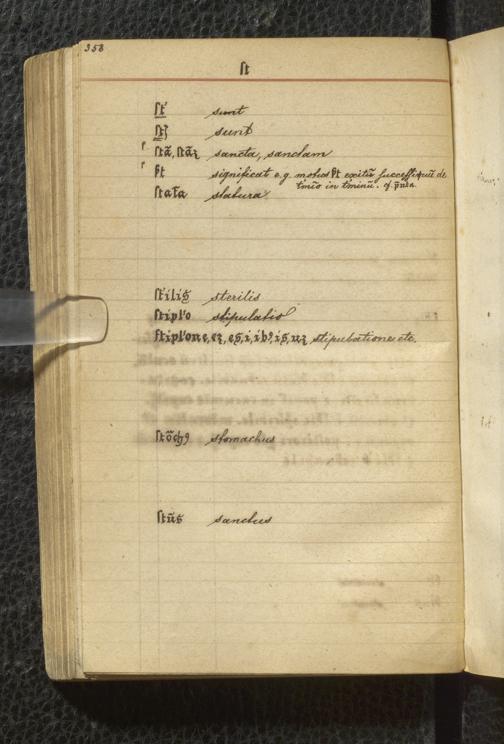 358
ſt
ſt̄ sunt
ſtʒ sunt
r ſtā, ſtāʒ sancta, sanctam
r ſt significat e.g. motus ſt exitū ſucceſſiuū de
tm̄īo in tm̄inū. cf.
ſtat̄a statura
ſt'iliſ sterilis
ſtipl'o stipulatio
ſtipl'one, eʒ, eſ, i, ib9, iſ, uʒ stipulatione etc.
ſtōch9 stomachus
ſtūſ sanctus